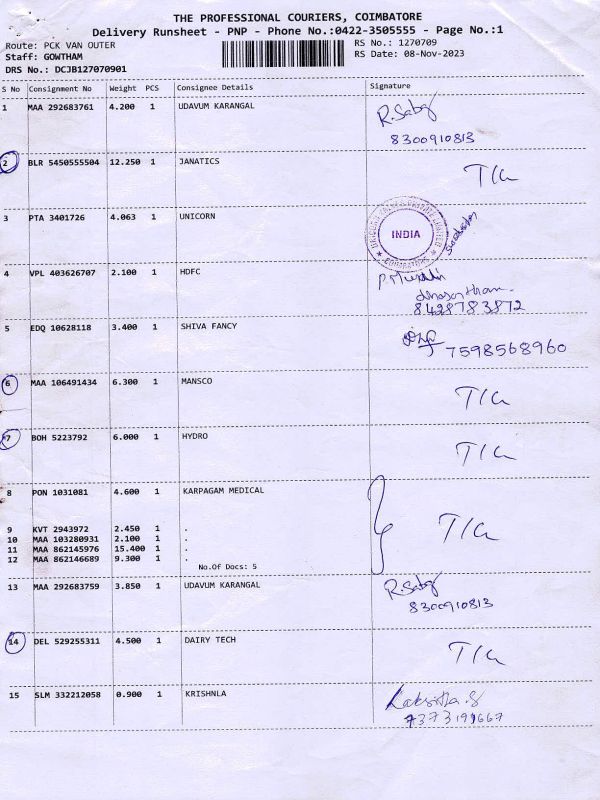 THE PROFESSIONAL COURIERS, COIMBATORE
Delivery Runsheet - PNP - Phone No.:0422-3505555 - Page No.:1
Route: PCK VAN OUTER
RS No.: 1270709
Staff: GOWTHAM
RS Date: 08-Nov-2023
DRS No.: DCJB127070901
S No Consignment No Weight PCS Consignee Details Signature
1 MAA 292683761 4.200 1 UDAVUM KARANGAL
8300910813
2 BLR 5450555504 12.250 1 JANATICS
3 PTA 3401726 4.063 1 UNICORN
INDIA
4 VPL 403626707 2.100 1 HDFC
8428783872
5 EDQ 10628118 3.400 1 SHIVA FANCY
7598568960
6 MAA 106491434 6.300 1 MANSCO
7 BOH 5223792 6.000 1 HYDRO
8 PON 1031081 4.600 1 KARPAGAM MEDICAL
9 KVT 2943972 2.450 1 .
10 MAA 103280931 2.100 1 .
11 MAA 862145976 15.400 1 .
12 MAA 862146689 9.300 1 .
No.Of Docs: 5
13 MAA 292683759 3.850 1 UDAVUM KARANGAL
8300910813
14 DEL 529255311 4.500 1 DAIRY TECH
15 SLM 332212058 0.900 1 KRISHNLA
7373199667